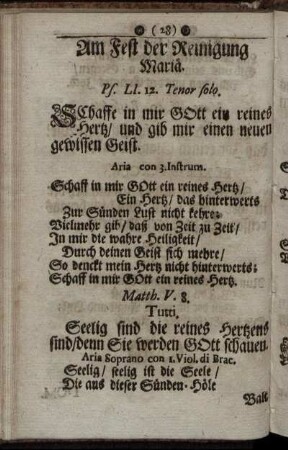 (28)
Am Fest der Reinigung
Mariä.
Ps. LI. 12. Tenor solo.
SChaffe in mir GOtt ein reines
Hertz/ und gib mir einen neuen
gewissen Geist.
Aria con 3. Instrum.
Schaff in mir GOtt ein reines Hertz/
Ein Hertz/ das hinterwerts
Zur Sünden Lust nicht kehre;
Vielmehr gib/ daß von Zeit zu Zeit/
In mir die wahre Heiligkeit/
Durch deinen Geist sich mehre/
So denckt mein Hertz nicht hinterwerts;
Schaff in mir GOtt ein reines Hertz.
Matth. V. 8.
Tutti.
Seelig sind die reines Hertzens
sind/denn Sie werden GOtt schauen.
Aria Soprano con 1. Viol. di Brac.
Seelig/ seelig ist die Seele/
Die aus dieser Sünden-Höle